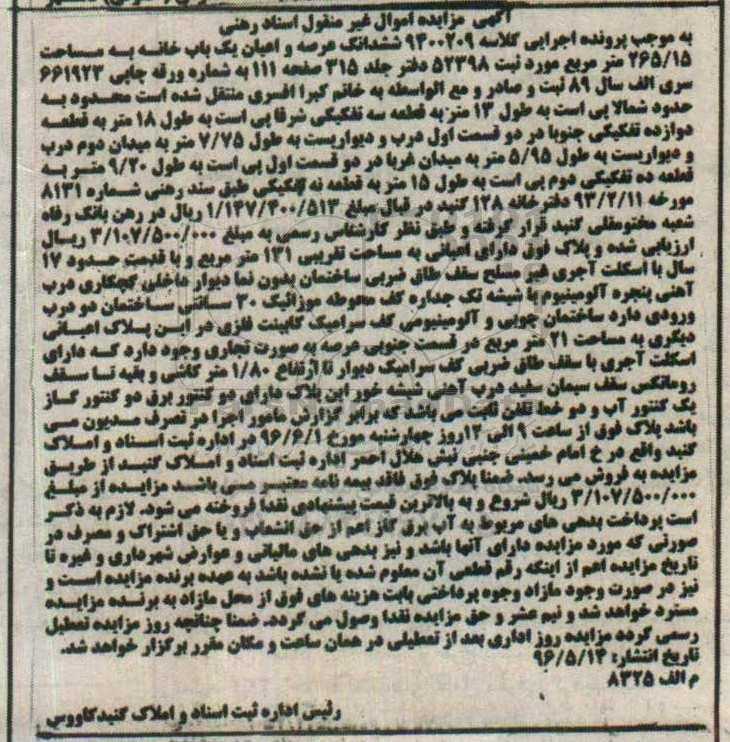 آگهی مزایده اموال غیر منقول اسناد رهنی
به موجب پرونده اجرایی کلاسه ۹۴۰۰۲۰۹ ششدانگ عرصه و اعیان یک باب خانه به مساحت
۲۶۵/۱۵ متر مربع مورد ثبت ۵۲۳۹۸ دفتر جلد ۳۱۵ صفحه ۱۱۱ به شماره ورقه چاپی ۶۶۱۹۲۳
سری الف سال ۸۹ ثبت و صادر و مع الواسطه به خانم کبرا افسری منتقل شده است محدود به
حدود شمالا پی است به طول ۱۳ متر به قطعه سه تفکیکی شرقا پی است به طول ۱۸ متر به قطعه
دوازده تفکیکی جنوبا در دو قسمت اول درب و دیواریست به طول ۷/۷۵ متر به میدان دوم درب
و دیواریست به طول ۵/۹۵ متر به میدان غربا در دو قسمت اول پی است به طول ۹/۲۰ متر به
قطعه ده تفکیکی دوم پی است به طول ۱۵ متر به قطعه نه تفکیکی طبق سند رهنی شماره ۸۱۳۱
مورخه ۹۳/۲/۱۱ دفترخانه ۱۲۸ گنبد در قبال مبلغ ۱/۱۴۷/۴۰۰/۵۱۳ ریال در رهن بانک رفاه
شعبه مختومقلی گنبد قرار گرفته و طبق نظر کارشناس رسمی به مبلغ ۳/۱۰۷/۵۰۰/۰۰۰ ریال
ارزیابی شده و پلاک فوق دارای اعیانی به مساحت تقریبی ۱۳۱ متر مربع و با قدمت حدود ۱۷
سال با اسکلت آجری غیر مسلح سقف طاق ضربی ساختمان بدون نما دیوار داخلی گچکاری درب
آهنی پنجره آلومینیوم با شیشه تک جداره کف محوطه موزائیک ۳۰ سانتی ساختمان دو درب
ورودی دارد ساختمان چوبی و آلومینیومی کف سرامیک کابینت فلزی در این پلاک اعیانی
دیگری به مساحت ۲۱ متر مربع در قسمت جنوبی عرصه به صورت تجاری وجود دارد که دارای
اسکلت آجری با سقف طاق ضربی کف سرامیک دیوار تا ارتفاع ۱/۸۰ متر کاشی و بقیه تا سقف
رومالکس سقف سیمان سفید درب آهنی شیشه خور این پلاک دارای دو کنتور برق دو کنتور گاز
یک کنتور آب و دو خط تلفن ثابت می باشد که برابر گزارش مامور اجرا در تصرف مدیون می
باشد پلاک فوق از ساعت ۹ الی ۱۲روز چهارشنبه مورخ ۹۶/۶/۱ در اداره ثبت اسناد و املاک
گنبد واقع در خ امام خمینی جنبی نبش هلال احمر اداره ثبت اسناد و املاک گنبد از طریق
مزایده به فروش می رسد. ضمنا پلاک فوق فاقد بیمه نامه معتبر می باشد مزایده از مبلغ
۳/۱۰۷/۵۰۰/۰۰۰ ریال شروع و به بالاترین قیمت پیشنهادی نقدا فروخته می شود. لازم به ذکر
است پرداخت بدهی های مربوط به آب برق گاز اعم از حق انشعاب و یا حق اشتراک و مصرف در
صورتی که مورد مزایده دارای آنها باشد و نیز بدهی های مالیاتی و عوارض شهرداری و غیره تا
تاریخ مزایده اعم از اینکه رقم قطعی آن معلوم شده یا نشده باشد به عهده برنده مزایده است و
نیز در صورت وجود مازاد وجوه پرداختی بابت هزینه های فوق از محل مازاد به برنده مزایده
مسترد خواهد شد و نیم عشر و حق مزایده نقدا وصول می گردد. ضمنا چنانچه روز مزایده تعطیل
رسمی گردد مزایده روز اداری بعد از تعطیلی در همان ساعت و مکان مقرر برگزار خواهد شد.
تاریخ انتشار: ۹۶/۵/۱۴
م الف ۸۳۲۵
رئیس اداره ثبت اسناد و املاک گنبدکاووس